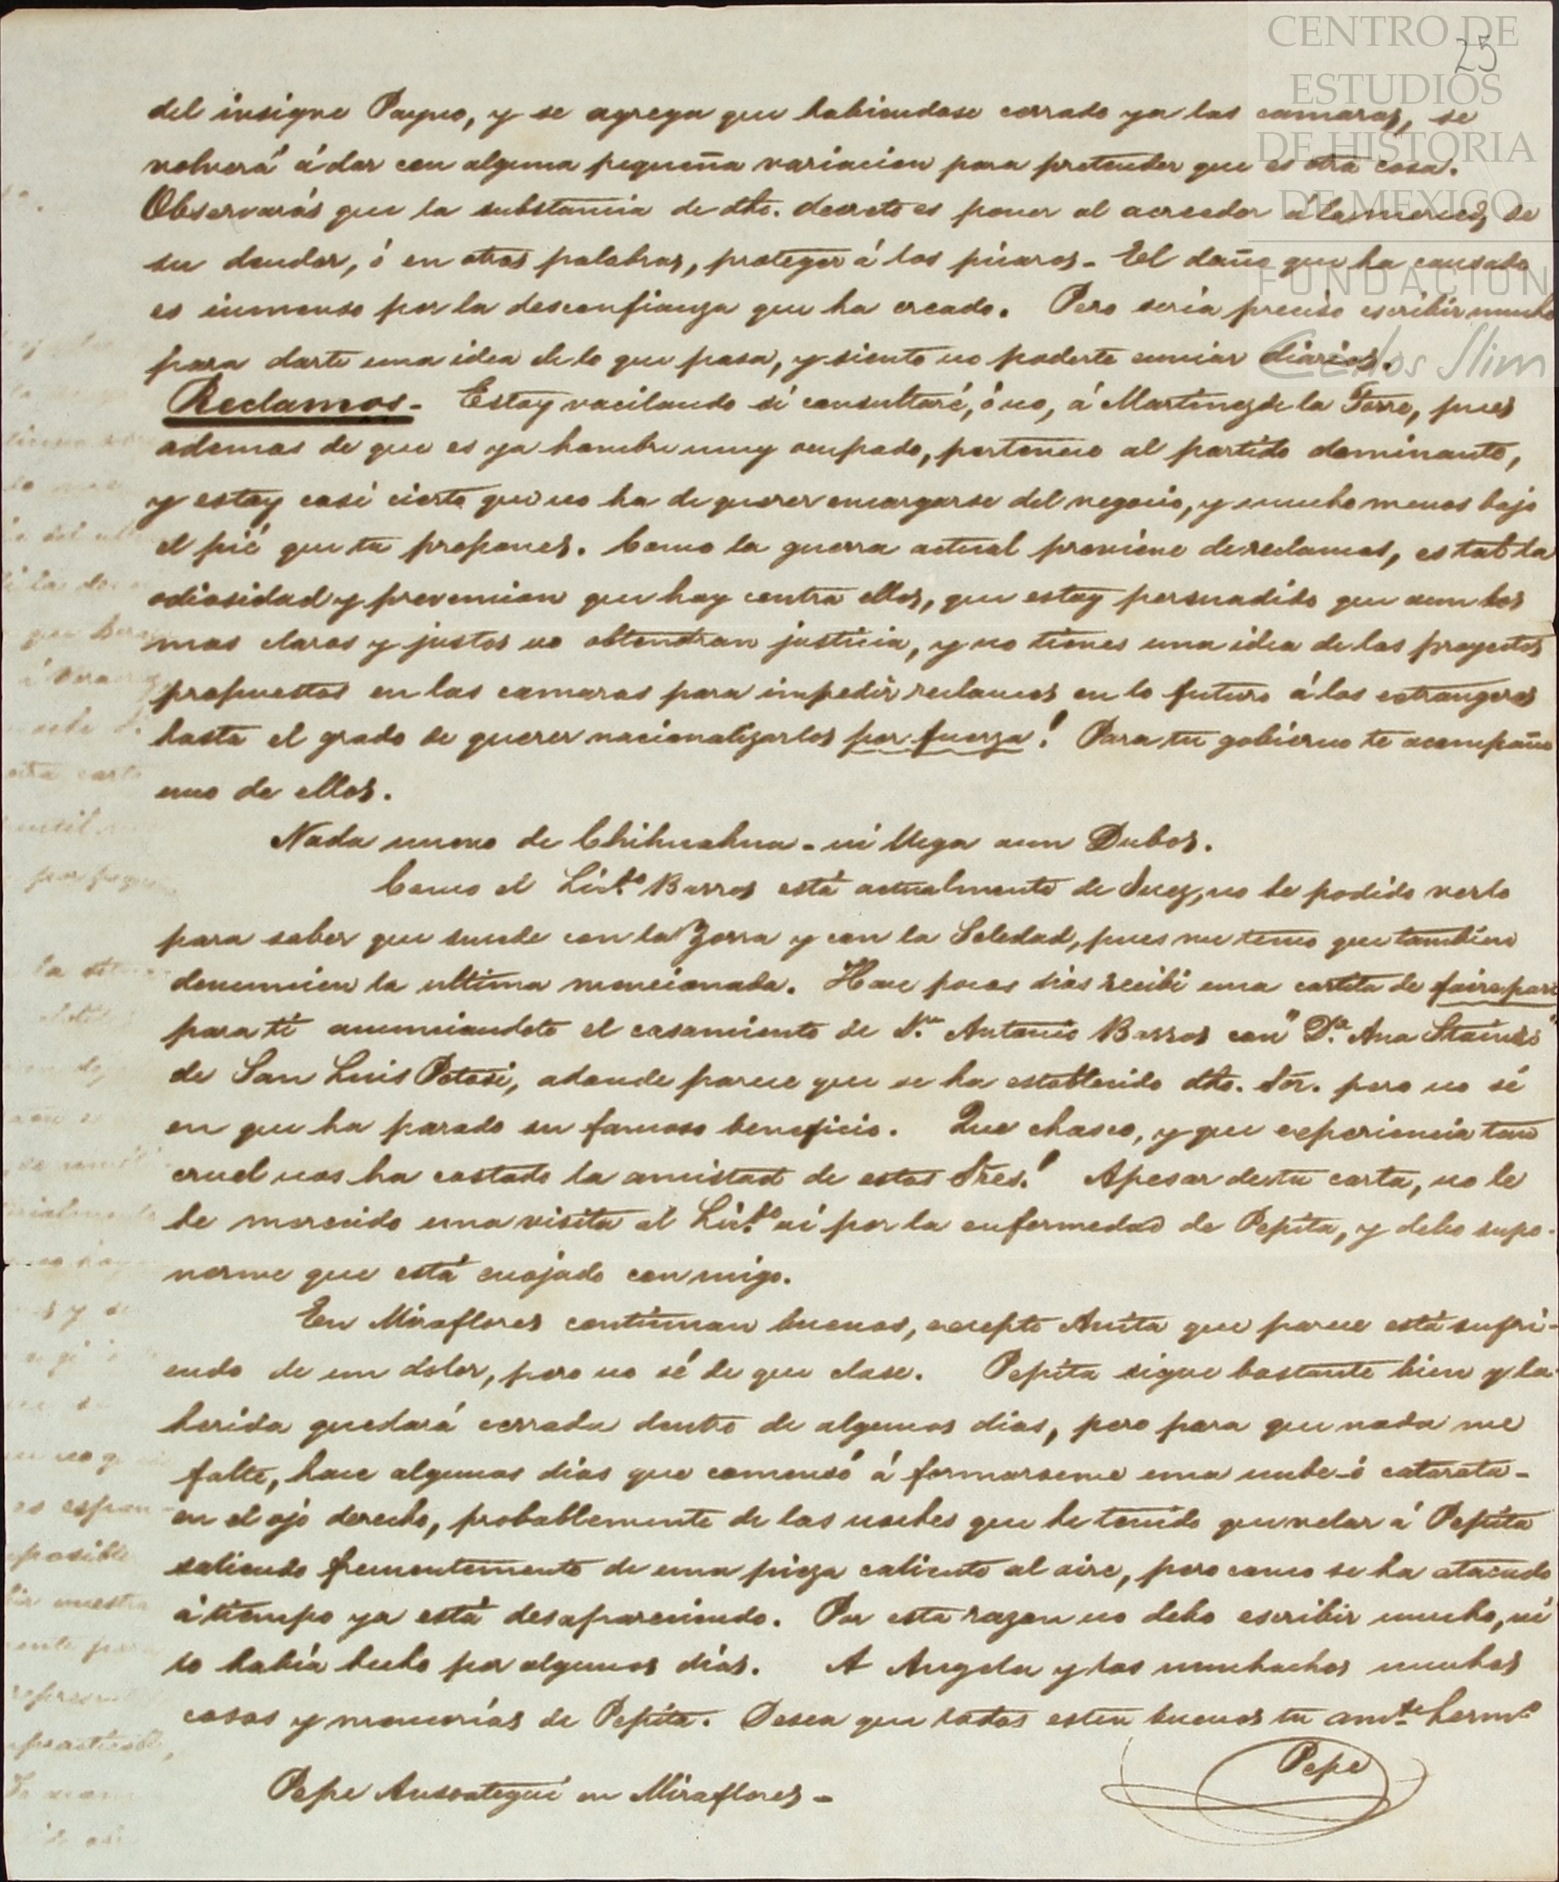 CENTRO DE
ESTUDIOS
DE HISTORIA
DE MEXICO
FUNDACION
Carlos Slim
25
del insigne Payno, y se agrega que habiendose cerrado ya las camaras, se
volverá á dar con alguna pequeña variacion para pretender que es otra cosa.
Observarás que la substancia de dho. decreto es poner al acreedor á la merced de
su deudor, ó en otras palabras, proteger á los pícaros - El daño que ha causado
es inmenso por la desconfianza que ha creado. Pero seria preciso escribir mucho
para darte una idea de lo que pasa, y siento no poderte enviar diarios.
Reclamos - Estoy vacilando si consultaré, ó no, á Martinez de la Torre, pues
ademas de que es ya hombre muy ocupado, pertenece al partido dominante,
y estoy casi cierto que no ha de querer encargarse del negocio, y mucho menos bajo
el pié que tu propones. Como la guerra actual proviene de reclamos, es tal la
odiosidad y prevencion que hay contra ellos, que estoy persuadido que aun los
mas claros y justos no obtendran justicia, y no tienes una idea de los proyectos
propuestos en las camaras para impedir reclamos en lo futuro á los estrangeros
hasta el grado de querer nacionalizarlos por fuerza! Para tu gobierno te acompaño
uno de ellos.
Nada nuevo de Chihuahua - ni llega aun Dubos.
Como el Licdo. Barros está actualmente de Juez, no he podido verlo
para saber que sucede con la Zorra y con la Soledad, pues me temo que tambien
denuncien la ultima mencionada. Hace pocos dias recibi una cartita de faire part
para ti anunciandote el casamiento de Dn. Antonio Barros con "Da. Ana Staines"
de San Luis Potosi, adonde parece que se ha establecido dho. Sór. pero no sé
en que ha parado su famoso beneficio. Que chasco, y que experiencia tan
cruel nos ha costado la amistad de estos Sres.! Apesar de tu carta, no le
he merecido una visita al Licdo. ni por la enfermedad de Pepita, y debo supo-
nerme que está enojado conmigo.
En Miraflores continuan buenos, excepto Anita que parece está sufri-
endo de un dolor, pero no sé de que clase. Pepita sigue bastante bien y la
herida quedará cerrada dentro de algunos dias, pero para que nada me
falte, hace algunos dias que comensó á formarseme una nube - ó catarata -
en el ojo derecho, probablemente de las noches que he tenido que velar á Pepita
saliendo frecuentemente de una pieza caliente al aire, pero como se ha atacado
á tiempo ya está desapareciendo. Por esta razon no debo escribir mucho, ni
lo habia hecho por algunos dias. A Angela y los muchachos muchas
cosas y memorias de Pepita. Desea que todos esten buenos tu amte. hermo.
Pepe
Pepe Ansoategui en Miraflores -